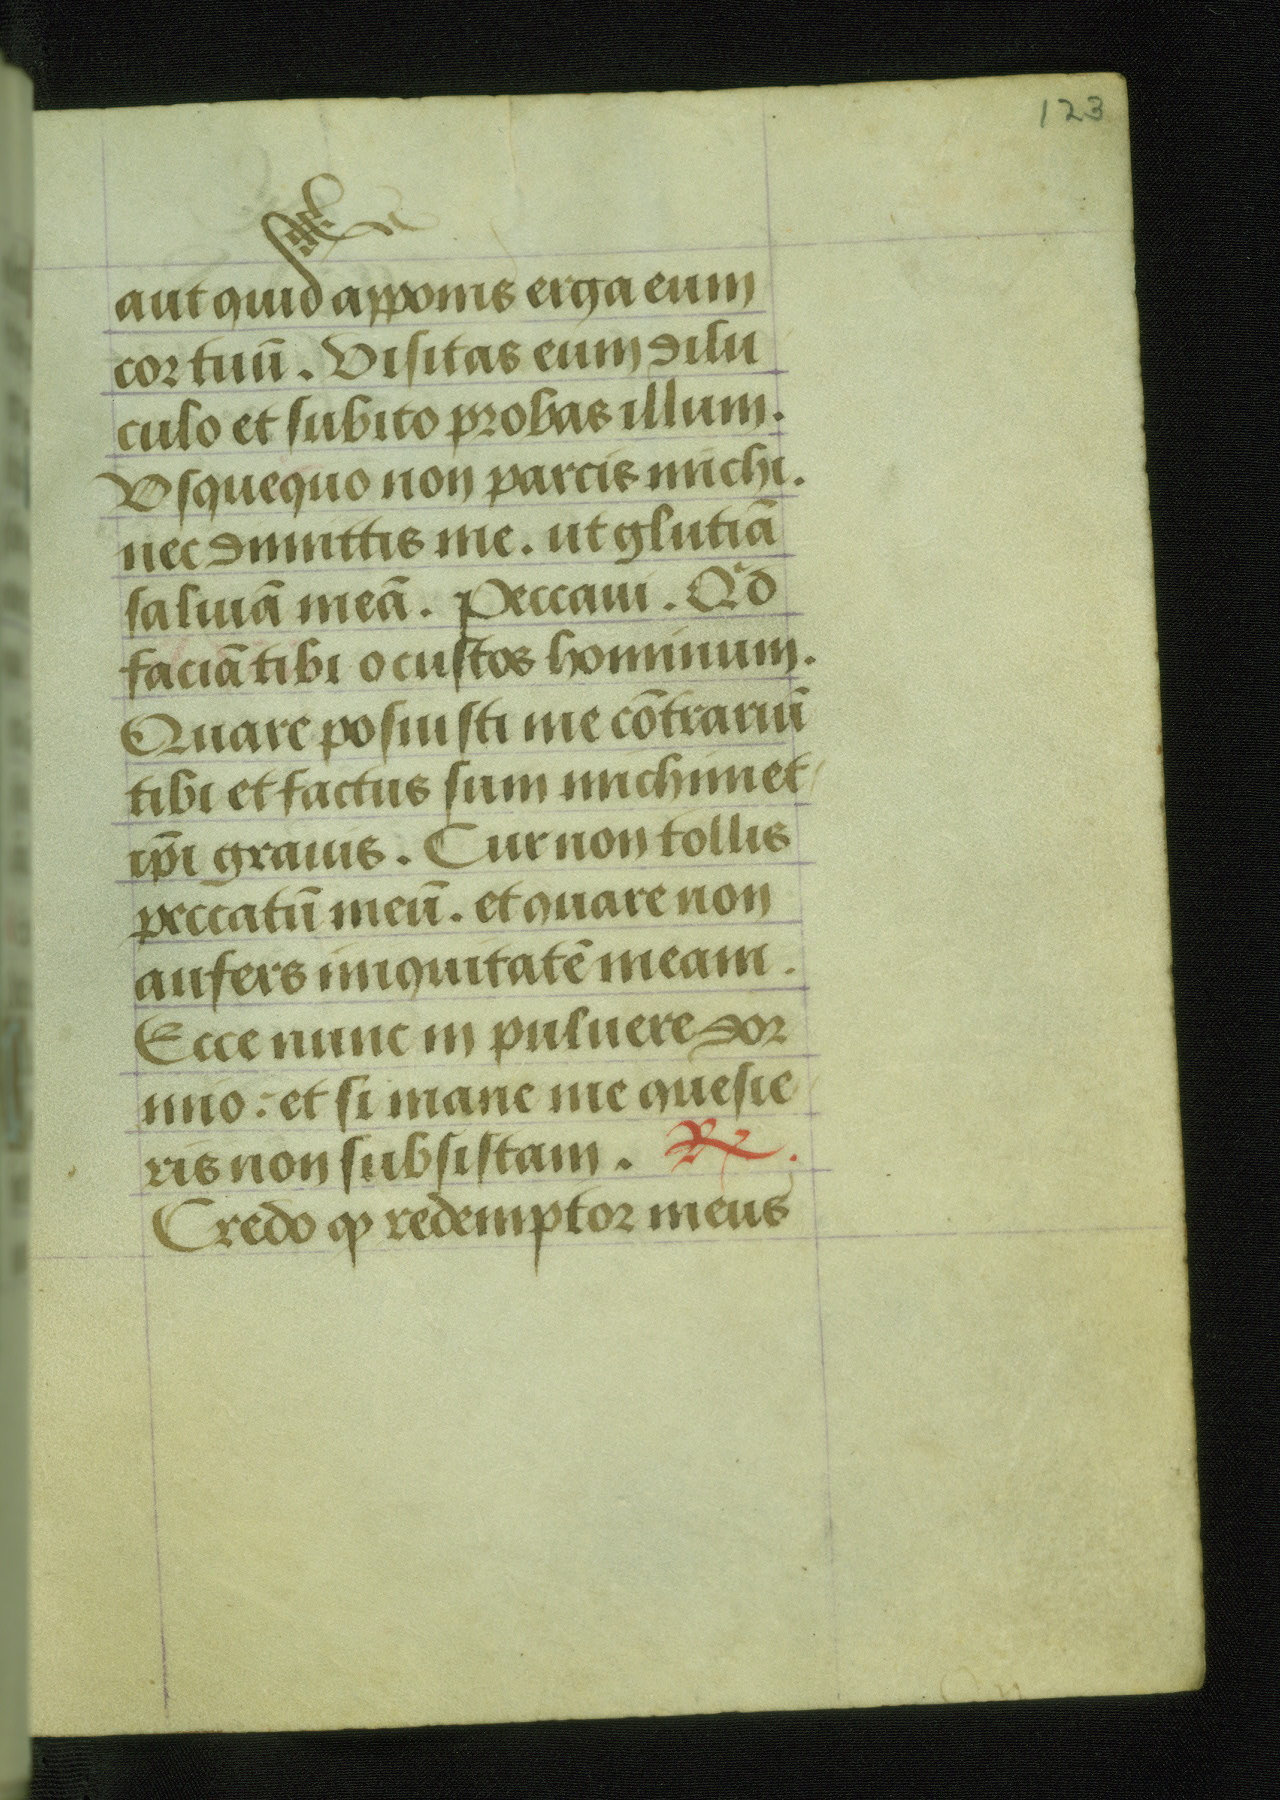 123
aut quid apponis erga eum
cor tuū. Visitas eum dilu
culo et subito probas illum.
Vsquequo non parcis michi.
nec dimittis me. ut glutiā
saliuā meā. Peccaui. Qͥd
faciā tibi o custos hominum.
Quare posuisti me cōtrariū
tibi et factus sum michimet
ip̄i grauis. Cur non tollis
peccatū meū. et quare non
aufers iniquitatē meam.
Ecce nunc in puluere dor
mio: et si mane me quesie
ris non subsistam. ℟.
Credo ꝙ redemptor meus